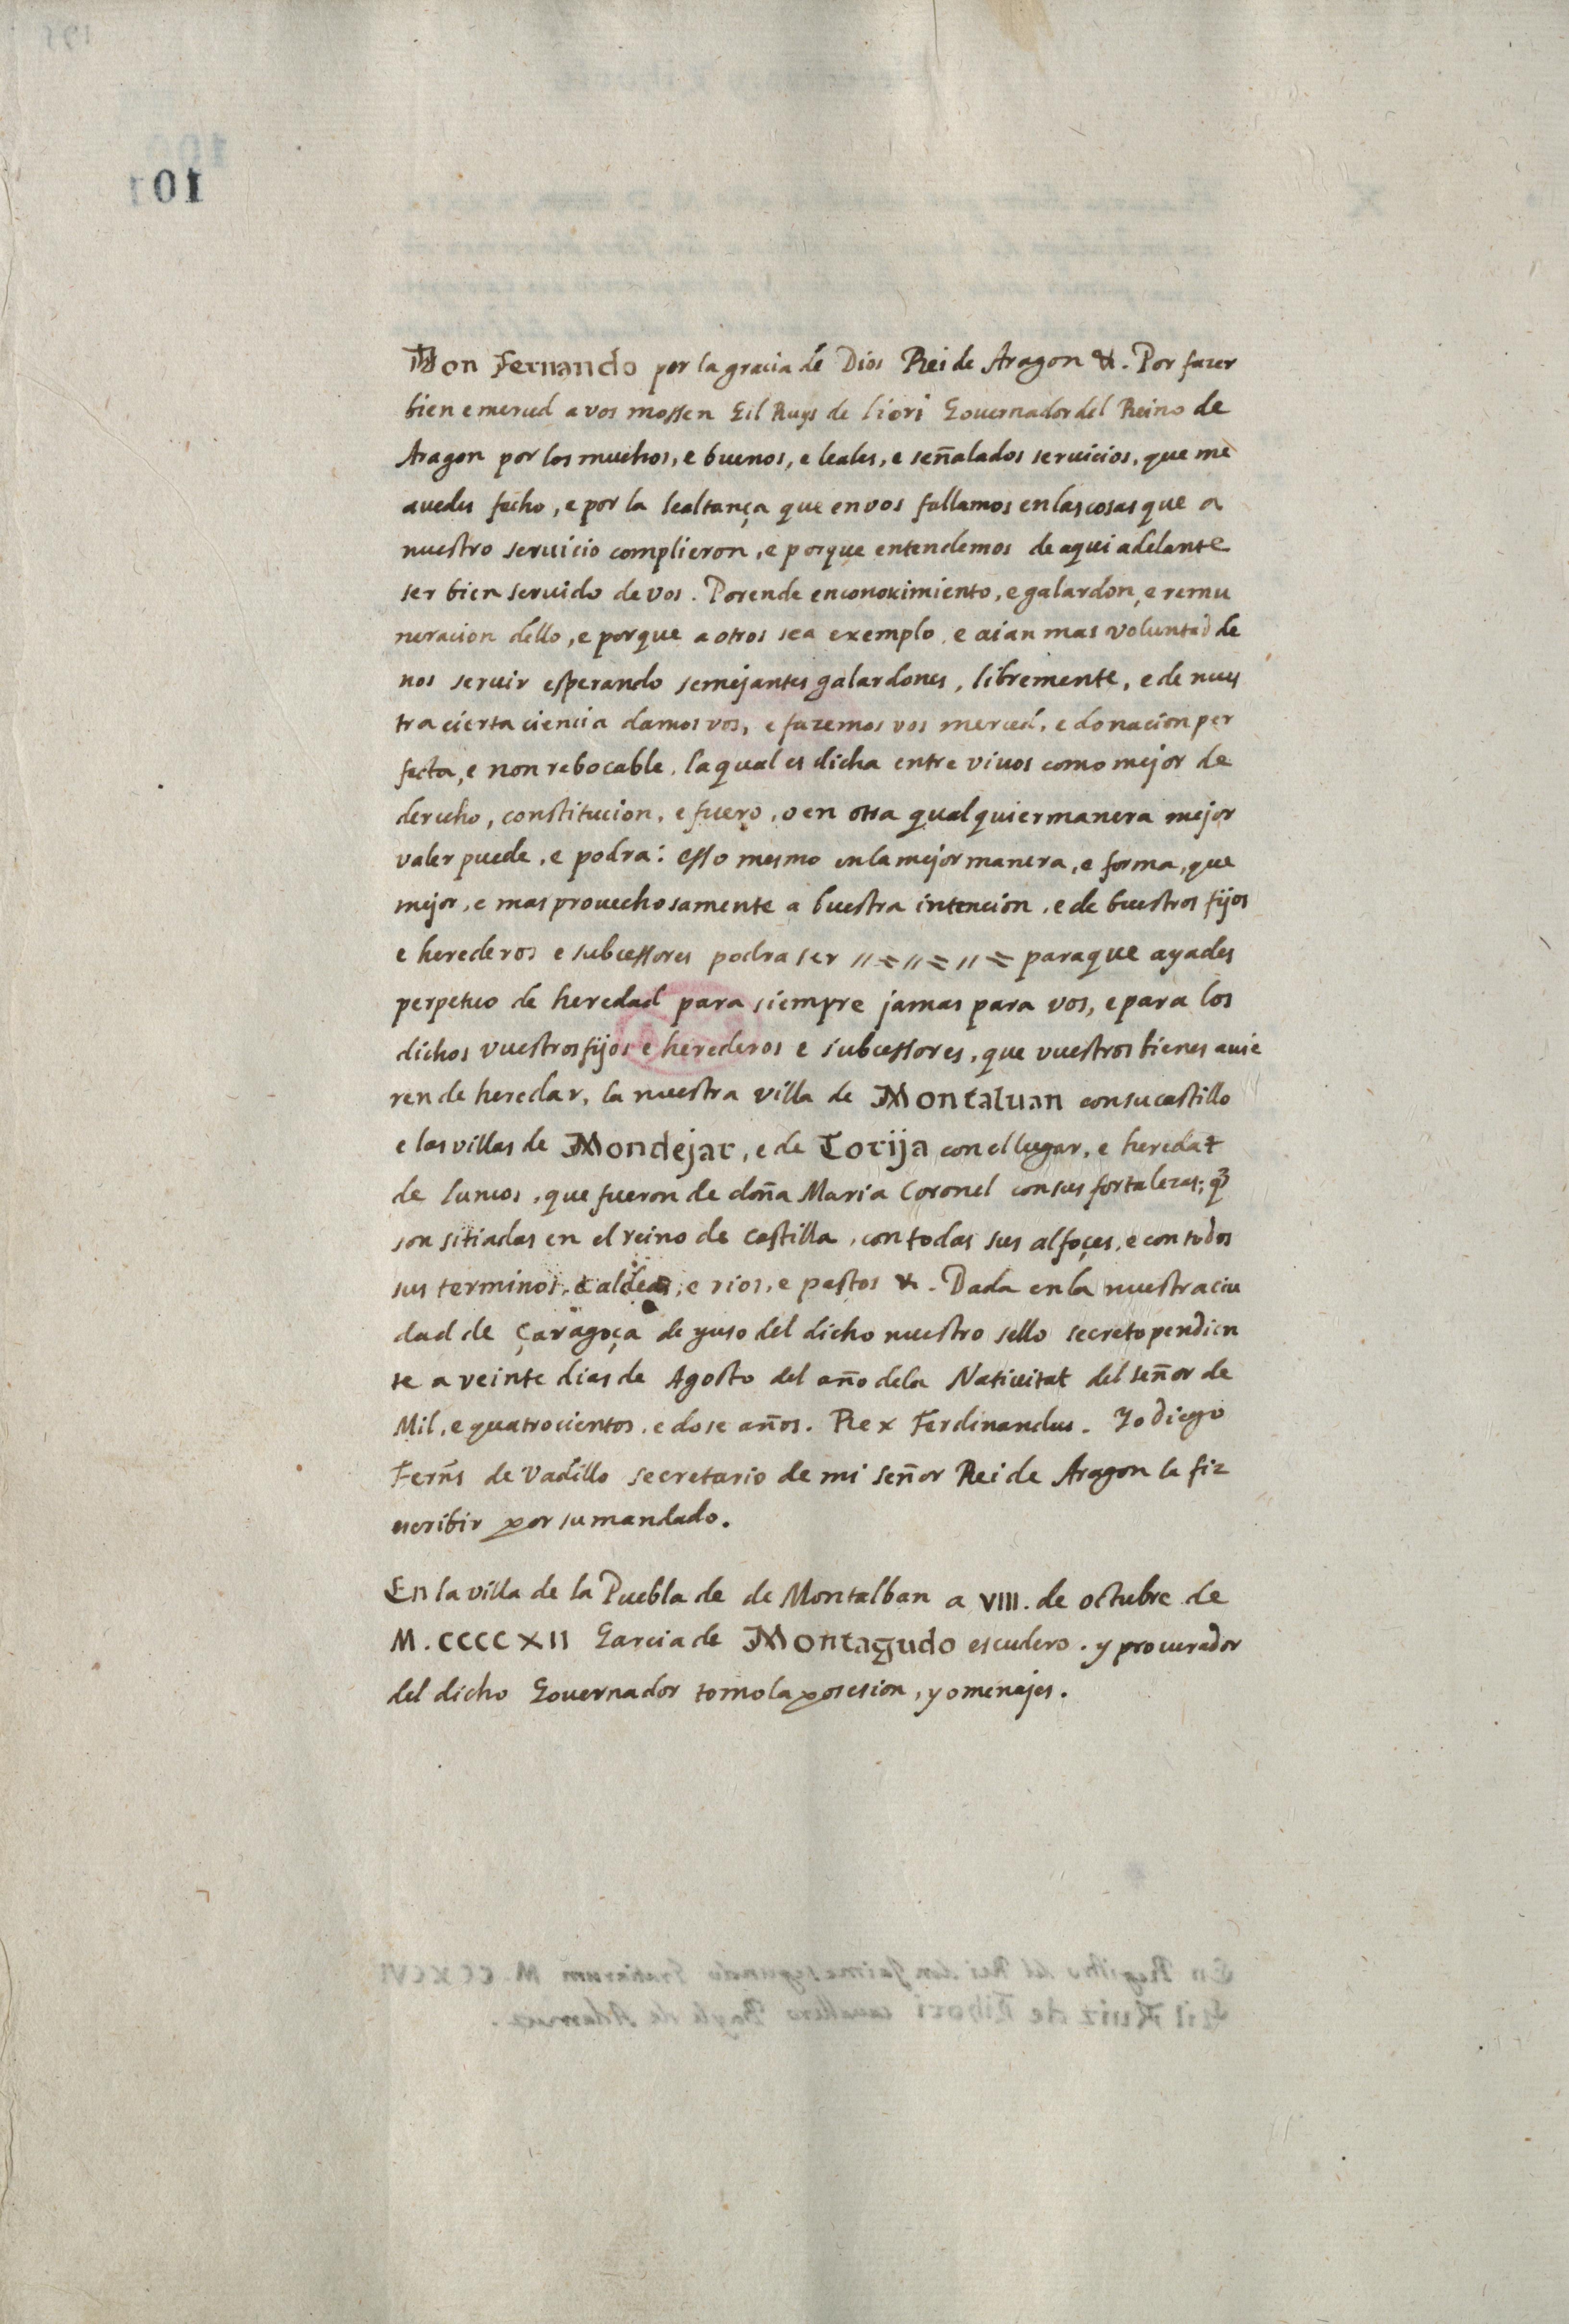 101
Don Fernando por la gracia de Dios Rei de Aragon &. Por fazer
bien e merced a vos mossen Gil Ruys de Liori Governador del Reino de
Aragon por los muchos, e buenos, e leales, e señalados servicios, que me
avedes fecho, e por la lealtança que en vos fallamos en las cosas que a
nuestro servicio complieron, e porque entendemos de aqui adelante
ser bien servido de vos. Porende en conoximiento, e galardon, e remu
neracion dello, e porque a otros sea exemplo, e aian mas voluntad de
nos servir esperando semejantes galardones, libremente, e de nues
tra cierta ciencia damos vos, e fazemos vos merced, e donacion per
fecta, e non rebocable, la qual es dicha entre vivos como mejor de
derecho, constitucion, e fuero, o en otra qualquier manera mejor
valer puede, e podra: esso mesmo en la mejor manera, e forma, que
mejor, e mas provechosamente a buestra intencion, e de buestros fijos
e herederos e subcessores podra ser para que ayades
perpetuo de heredad para siempre jamas para vos, e para los
dichos vuestros fijos e herederos e subcessores, que vuestros bienes avie
ren de heredar, la nuestra villa de Montaluan con su castillo
e las villas de Mondejar, e de Torija con el lugar, e heredat
de Lunios, que fueron de doña Maria Coronel con sus fortalezas; q̃
son sitiadas en el reino de Castilla, con todas sus alfoçes, e con todos
sus terminos, e aldeas, e rios, e pastos &. Dada en la nuestra ciu
dad de Çaragoça de yuso del dicho nuestro sello secreto pendien
te a veinte dias de Agosto del año dela Nativitat del señor de
Mil, e quatrocientos, e dose años. Rex Ferdinandus. Yo diego
Ferñs de Vadillo secretario de mi señor Rei de Aragon la fiz
escribir por su mandado.
En la villa de la Puebla de de Montalban a VIII. de octubre de
M.CCCCXII Garcia de Montagudo escudero. y procurador
del dicho Governador tomo la posesion, y omenajes.